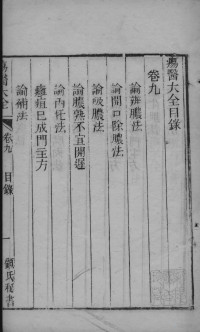 瘍醫大全目錄
卷九
論辨膿法
論開口除膿法
論吸膿法
論膿熟不宜開遲
論內托法
癰疽已成門主方
論補法
瘍醫大全
卷九 目錄
一
顧氏秘書